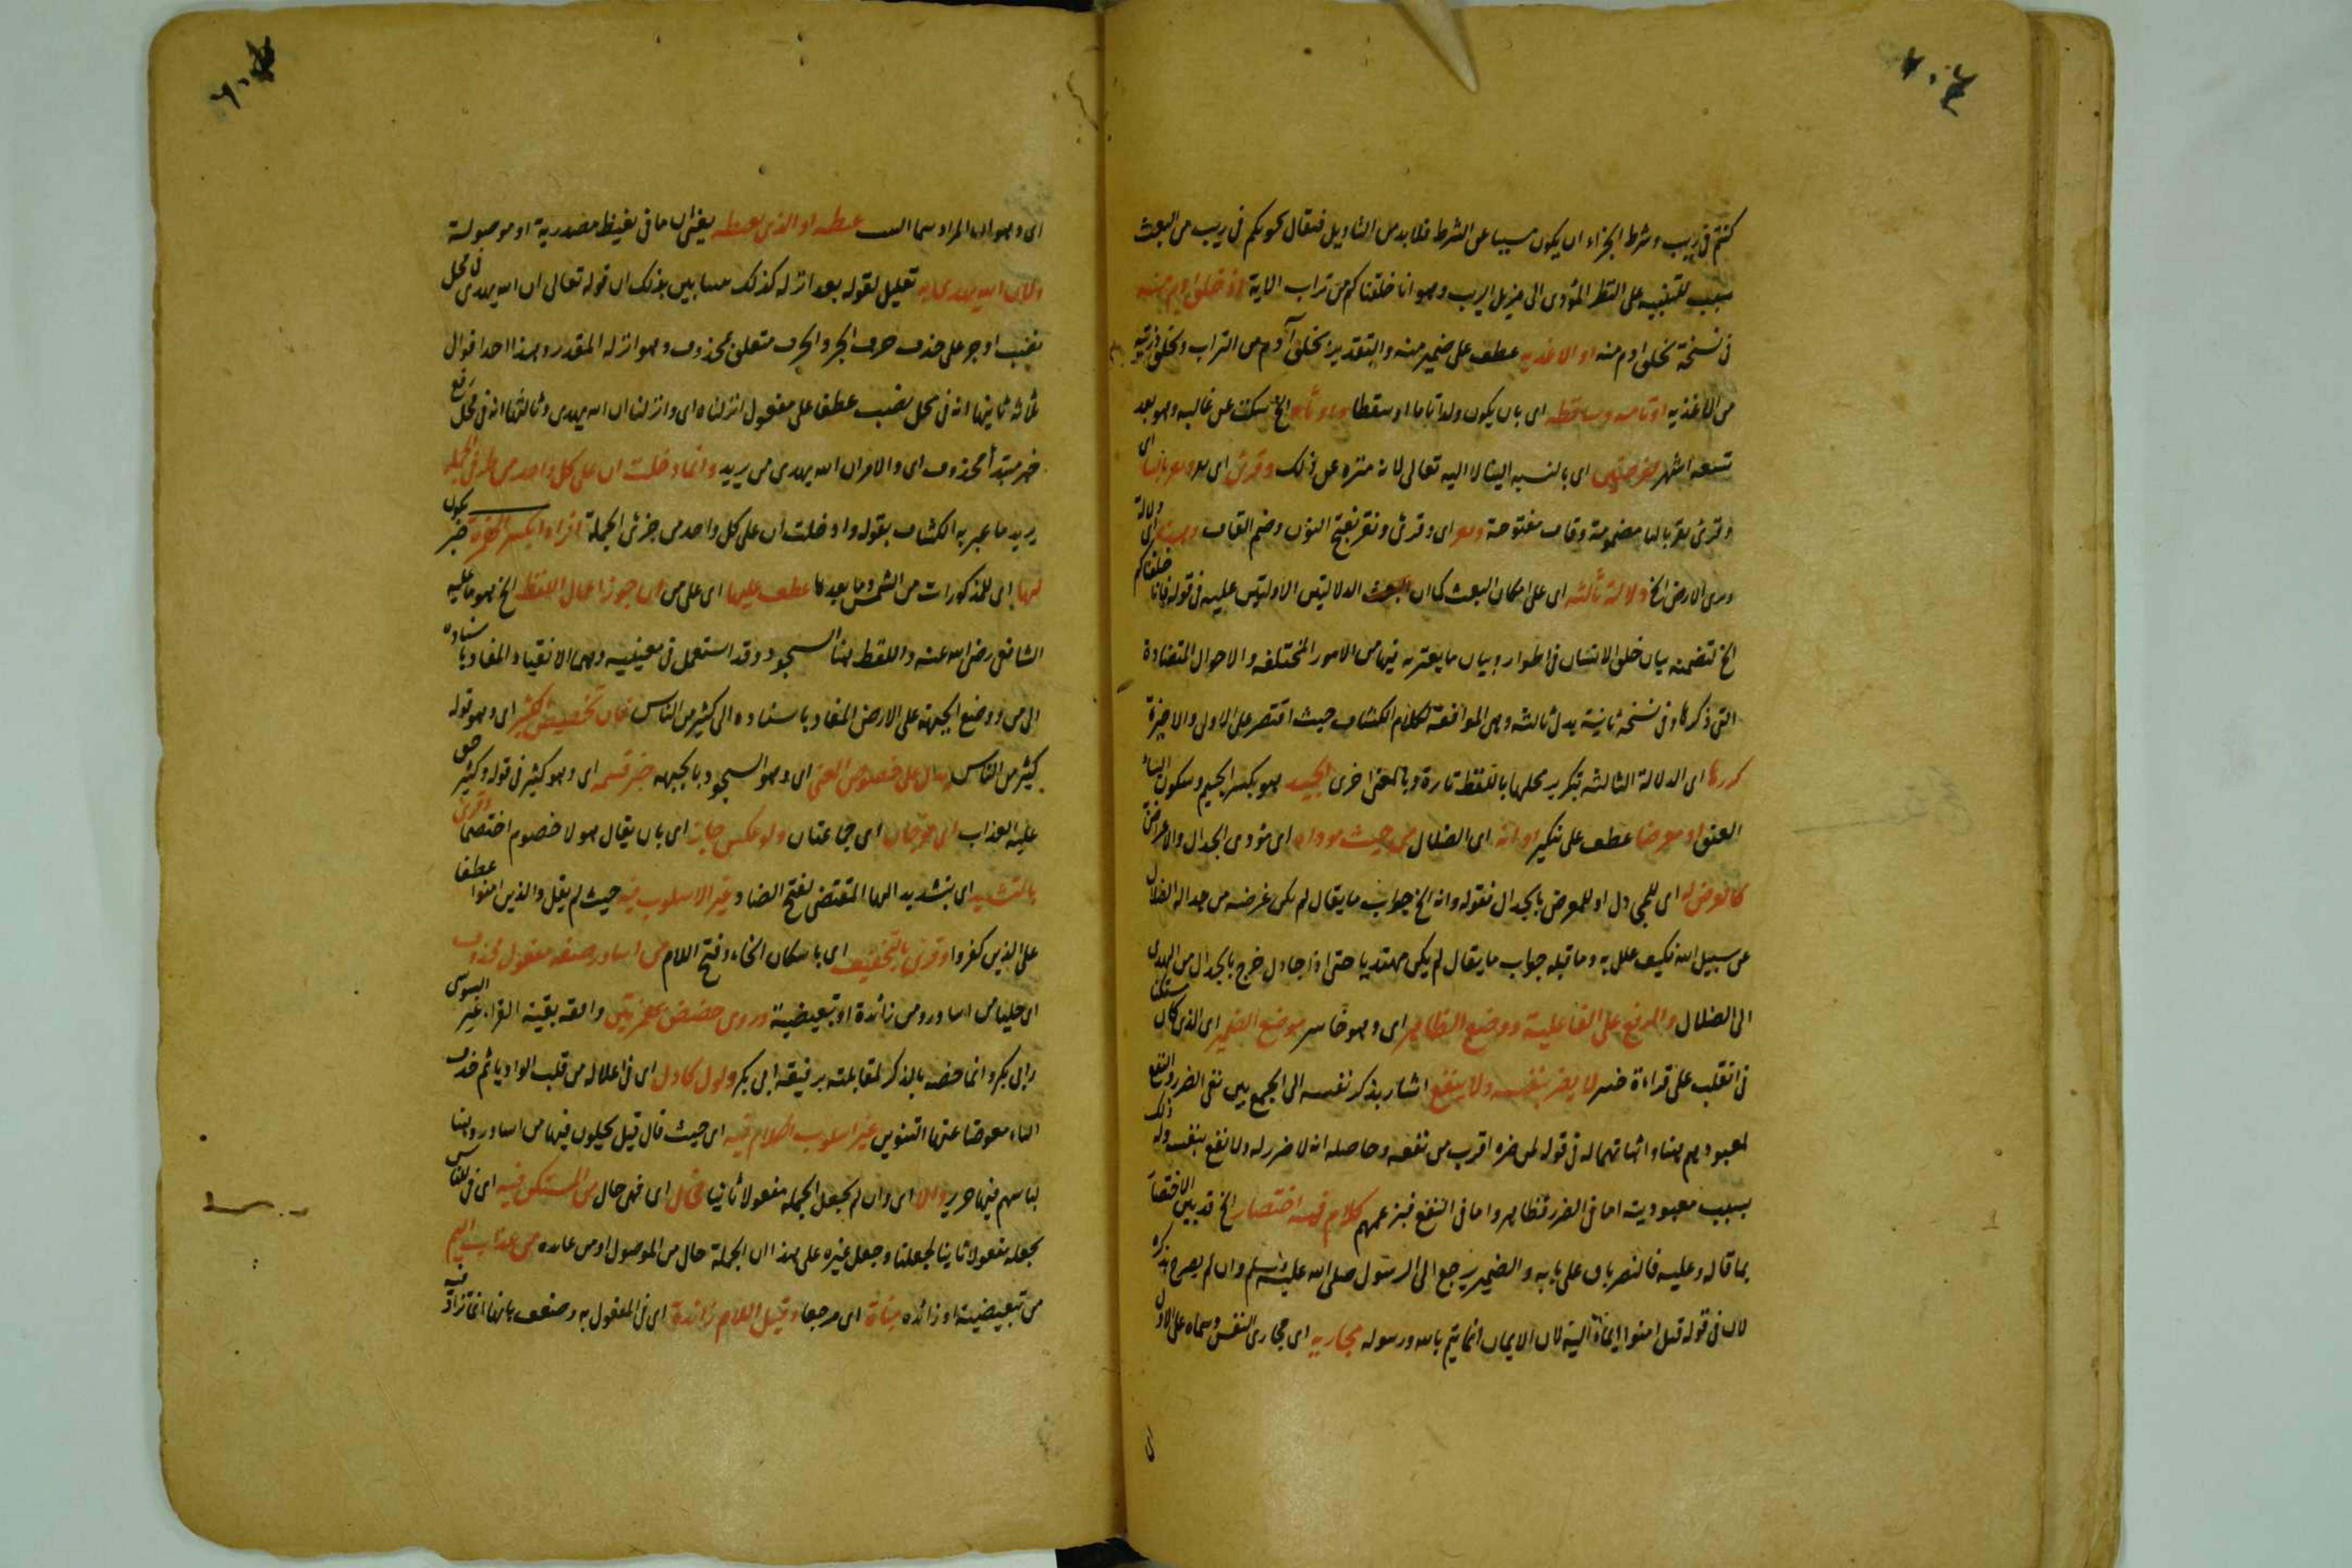 كنتم في ريب وشرط الجزاء ان يكون مسببا عن الشرط فلا بد من التاويل فيقال نحو بكم في ريب من البعث
بسبب للتنبيه على النظر المؤدى الى مزيل الريب وهو انا خلقناكم من تراب الاية اذ خلق ادم منه
في نسخة بخلق ادم منه او الاغذيه عطف على ضمير منه والتقدير بخلق آدم من التراب وبخلق ذريته
من الاغذيه او تامه وساقطه اى بان يكون ولدا تاما او سقطا الخ سكت عن غالبه وهو بعد
تسعه اشهر اى بالنسبه الينا لا اليه تعالى لانه منزه عن ذلك وقرئ اى
وقرئ نقر باليا مضمومة وقاف مفتوحة اى وقرئ ونقر بفتح النون وضم القاف
وترى الارض الخ دلالة ثالثه اى على امكان البعث كما ان البعث الدلالتين الاولتين عليه في قوله فانا خلقناكم
الخ لتضمنه بيان خلق الانسان في اطوار وبيان ما يعتريه فيها من الامور المختلفه والاحوال المتضادة
التى ذكرها وفي نسخة ثانية بدل ثالثه وهى الموافقة لكلام الكشاف حيث اقتصر على الاولى والاخيرة
كررها اى الدلالة الثالثه بتكرير محلها باللفظ تارة وبالمعنى اخرى الجيد هو بكسر الجيم وسكون الياء
العنق او معرضا عطف على متكبر او انه اى الضلال من حيث موداه اى مؤدى الجدال والاعراض
كالغرض له اى للمجادل او للمعرض بالجدال فقوله وانه الخ جواب ما يقال لم يكن غرضه من جداله الضلال
عن سبيل الله فكيف علل به وما قبله جواب ما يقال لم يكن مهتديا حتى اذا جادل خرج بالجدال من الهدى
الى الضلال والرفع على الفاعلية ووضع الظاهر اى وهو خاسر موضع الضمير اى الذى كان مستكنا
في انقلب على قراءة خسر لا يضر بنفسه ولا ينفع اشار بذكر نفسه الى الجمع بين نفى الضرر والنفع
لمعبودهم هنا واثباتهما له في قوله لمن ضره اقرب من نفعه وحاصله انه لا ضرر له ولا نفع بنفسه وله ذلك
بسبب معبوديته اما في الضرر فظاهر واما في النفع فبزعمهم كلام فيه اختصار الخ قد بين الاختصار
بما قاله وعليه فالنصر باق على بابه والضمير يرجع الى الرسول صلى الله عليه وسلم وان لم يصرح بذكره
لان في قوله قبل امنوا ايماء اليه لان الايمان انما يتم بالله ورسوله مجازيه اى مجازى النفس وسماه على الاول
اى وهو ان المراد سما البيت غيظه او الذى يغيظه يعنى ان ما في يغيظ مصدرية او موصولة
ولان الله يهدى به تعليل لقوله بعد انزله كذلك مبينا بين بذلك ان قوله تعالى ان الله يهدى في محل
نصب او جر على حذف حرف الجر والجرف متعلق بمحذوف وهو انزله المقدر وهذا احد اقوال
ثلاثه ثانيها انه في محل نصب عطفا على مفعول انزلناه اى وانزلنا ان الله يهدى وثالثها انه في محل رفع
خبر مبتدأ محذوف اى والامر ان الله يهدى من يريد وانما دخلت ان على كل واحد من طرفى الجملة
يريد ما عبر به الكشاف بقوله وادخلت ان على كل واحد من جزئى الجملة
لها اى للمذكورات من الشمس وما بعدها عطف عليها اى على من ان جوز اعمال اللفظ الخ هو ما عليه
الشافعى رضى الله عنه واللفظ هنا السجود وقد استعمل في معنييه وهما الانقياد المفاد باسناده
الى من ووضع الجبهة على الارض المفاد باسناده الى كثير من الناس فان تخصيص الكثير اى وهو قوله
كثير من الناس يدل على خصوص المعنى اى وهو السجود بالجبهه خبر قسمه اى وهو كثير في قوله وكثير حق
عليه العذاب اى فوجان اى جماعتان ولو عكس جاز اى بان يقال هولا خصوم اختصما وقرئ
بالتشديد اى بتشديد الها المقتضى لفتح الصاد وغير الاسلوب فيه حيث لم يقل والذين امنوا عطفا
على الذين كفروا وقرئ بالتخفيف اى باسكان الخاء وفتح اللام من اساور صفه مفعول محذوف
اى حليا من اساور ومن زائدة او تبعيضية وروى حفص بهمزتين وافقه بقية القراء غير السوسى
وابى بكر وانما خصه بالذكر لمقابلته برفيقه ابى بكر ولول كادل اى في اعلاله من قلب الواو ياء ثم حذف
الياء معوضا عنها التنوين غير اسلوب الكلام فيه اى حيث قال قبل يحلون فيها من اساور وهنا
لباسهم فيها حرير والا اى وان لم يجعل الجملة مفعولا ثانيا فحال اى فهى حال من المستكن فيه اى في للناس
بجعله مفعولا ثانيا لجعلنا وجعل غيره على هذا ان الجملة حال من الموصول او من عائده من عذاب اليم
من تبعيضية او زائده مباة اى مرجعا وقيل اللام زائدة اى في المفعول به وضعف بانها انما تزاد فيه